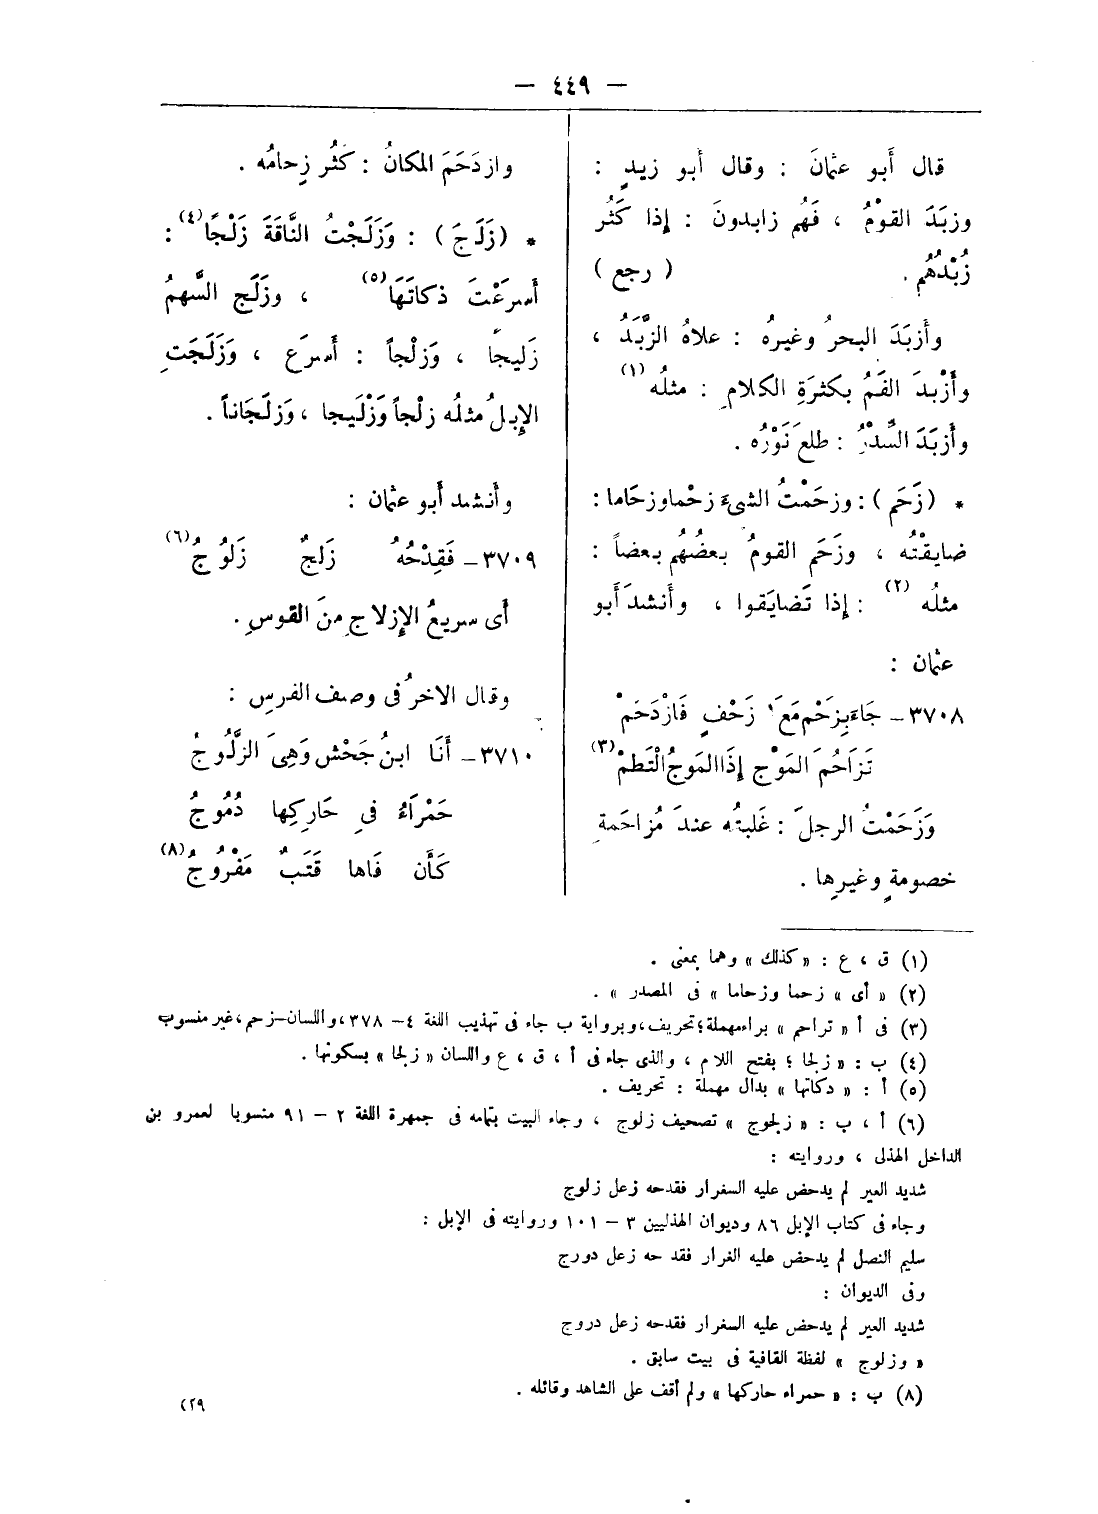 — ٤٤٩ —
قال أَبو عثمانَ : وقال أَبو زيدٍ :
وزبَدَ القومُ ، فَهُم زابدونَ : إِذا كَثُر
زُبْدُهُم . ( رجع )
وأَزبَدَ البحرُ وغيرُه : علاهُ الزَّبَدُ ،
وأَزْبدَ الفَمُ بكثرَةِ الكلامِ : مثلُه (١)
وأَزبَدَ السِّدْرُ : طلعَ نَوْرُه .
* (زَحَم) : وزحَمْتُ الشىءَ زحْما وزحَاما :
ضايقْتُه ، وزَحَم القومُ بعضُهُم بعضاً :
مثلُه (٢) : إِذا تَضايَقوا ، وأَنشدَ أَبو
عثمان :
٣٧٠٨ – جَاءَ بِزَحْمٍ مَعَ زَحْفٍ فَازْدَحَمْ
تَزَاحُمَ المَوْجِ إِذَا المَوجُ الْتَطمْ (٣)
وَزَحَمْتُ الرجلَ : غَلبتُه عندَ مُزاحَمةِ
خصومةٍ وغيرِها .
وازدَحَمَ المكانُ : كَثُر زِحامُه .
* (زَلَجَ) : وَزَلَجْتُ النَّاقَةَ زَلْجًا (٤) :
أَسرَعْتَ ذكاتَهَا (٥) ، وزَلَج السَّهمُ
زَليجًا ، وَزلْجاً : أَسرَع ، وَزَلَجَتِ
الإِبلُ مثلُه زلْجاً وَزْلَيجا ، وَزلَجَاناً .
وأَنشد أَبو عثمان :
٣٧٠٩ – فَقِدْحُهُ زَلجٌ زَلُوجُ (٦)
أَى سريعُ الإِزلاجِ منَ القوسِ .
وقال الاخرُ فى وصف الفرسِ :
٣٧١٠ – أَنَا ابنُ جَحْش وَهِىَ الزَّلُوجُ
حَمْرَاءُ فى حَارِكِها دُمُوجُ
كَأَن فَاها قَتَبٌ مَفْرُوجُ (٨)
(١) ق ، ع : « كذلك » وهما بمعنى .
(٢) « أى » زحما وزحاما » فى المصدر » .
(٣) فى أ « تراحم » براء مهملة؛ تحريف، وبرواية ب جاء فى تهذيب اللغة ٤ – ٣٧٨، واللسان–زحم، غير منسوب
(٤) ب : « زلجا ؛ بفتح اللام ، والذى جاء فى أ ، ق ، ع واللسان « زلجا » بسكونها .
(٥) أ : « دكاتها » بدال مهملة : تحريف .
(٦) أ ، ب : « زلجوج » تصحيف زلوج ، وجاء البيت بتمامه فى جمهرة اللغة ٢ – ٩١ منسوبا لعمرو بن
الداخل الهذلى ، وروايته :
شديد العير لم يدحض عليه السغرار فقدحه زعل زلوج
وجاء فى كتاب الإبل ٨٦ وديوان الهذليين ٣ – ١٠١ وروايته فى الإبل :
سليم النصل لم يدحض عليه الغرار فقد حه زعل دورج
وفى الديوان :
شديد العير لم يدحض عليه السغرار فقدحه زعل دروج
« وزلوج » لفظة القافية فى بيت سابق .
(٨) ب : « حمراء حاركها » ولم أقف على الشاهد وقائله .
(٢٩